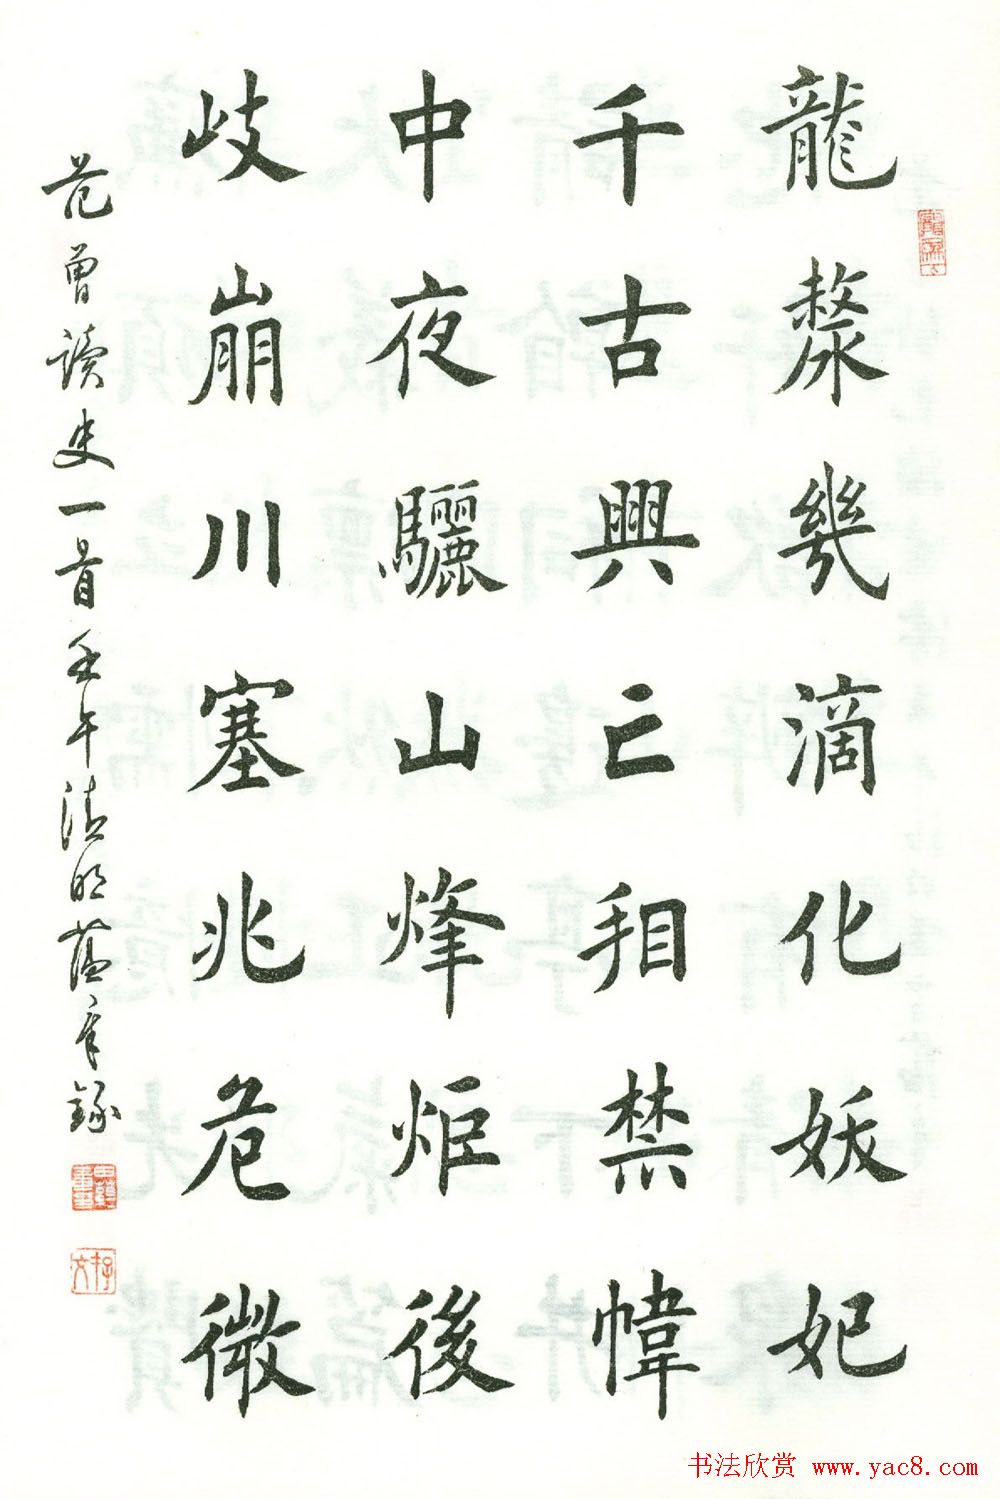 龍漦幾滴化妖妃
千古興亡看禁幃
中夜驪山烽炬後
岐崩川塞兆危微
范曾讀史一首壬午清明蕴章錄
书法欣赏 www.yac8.com